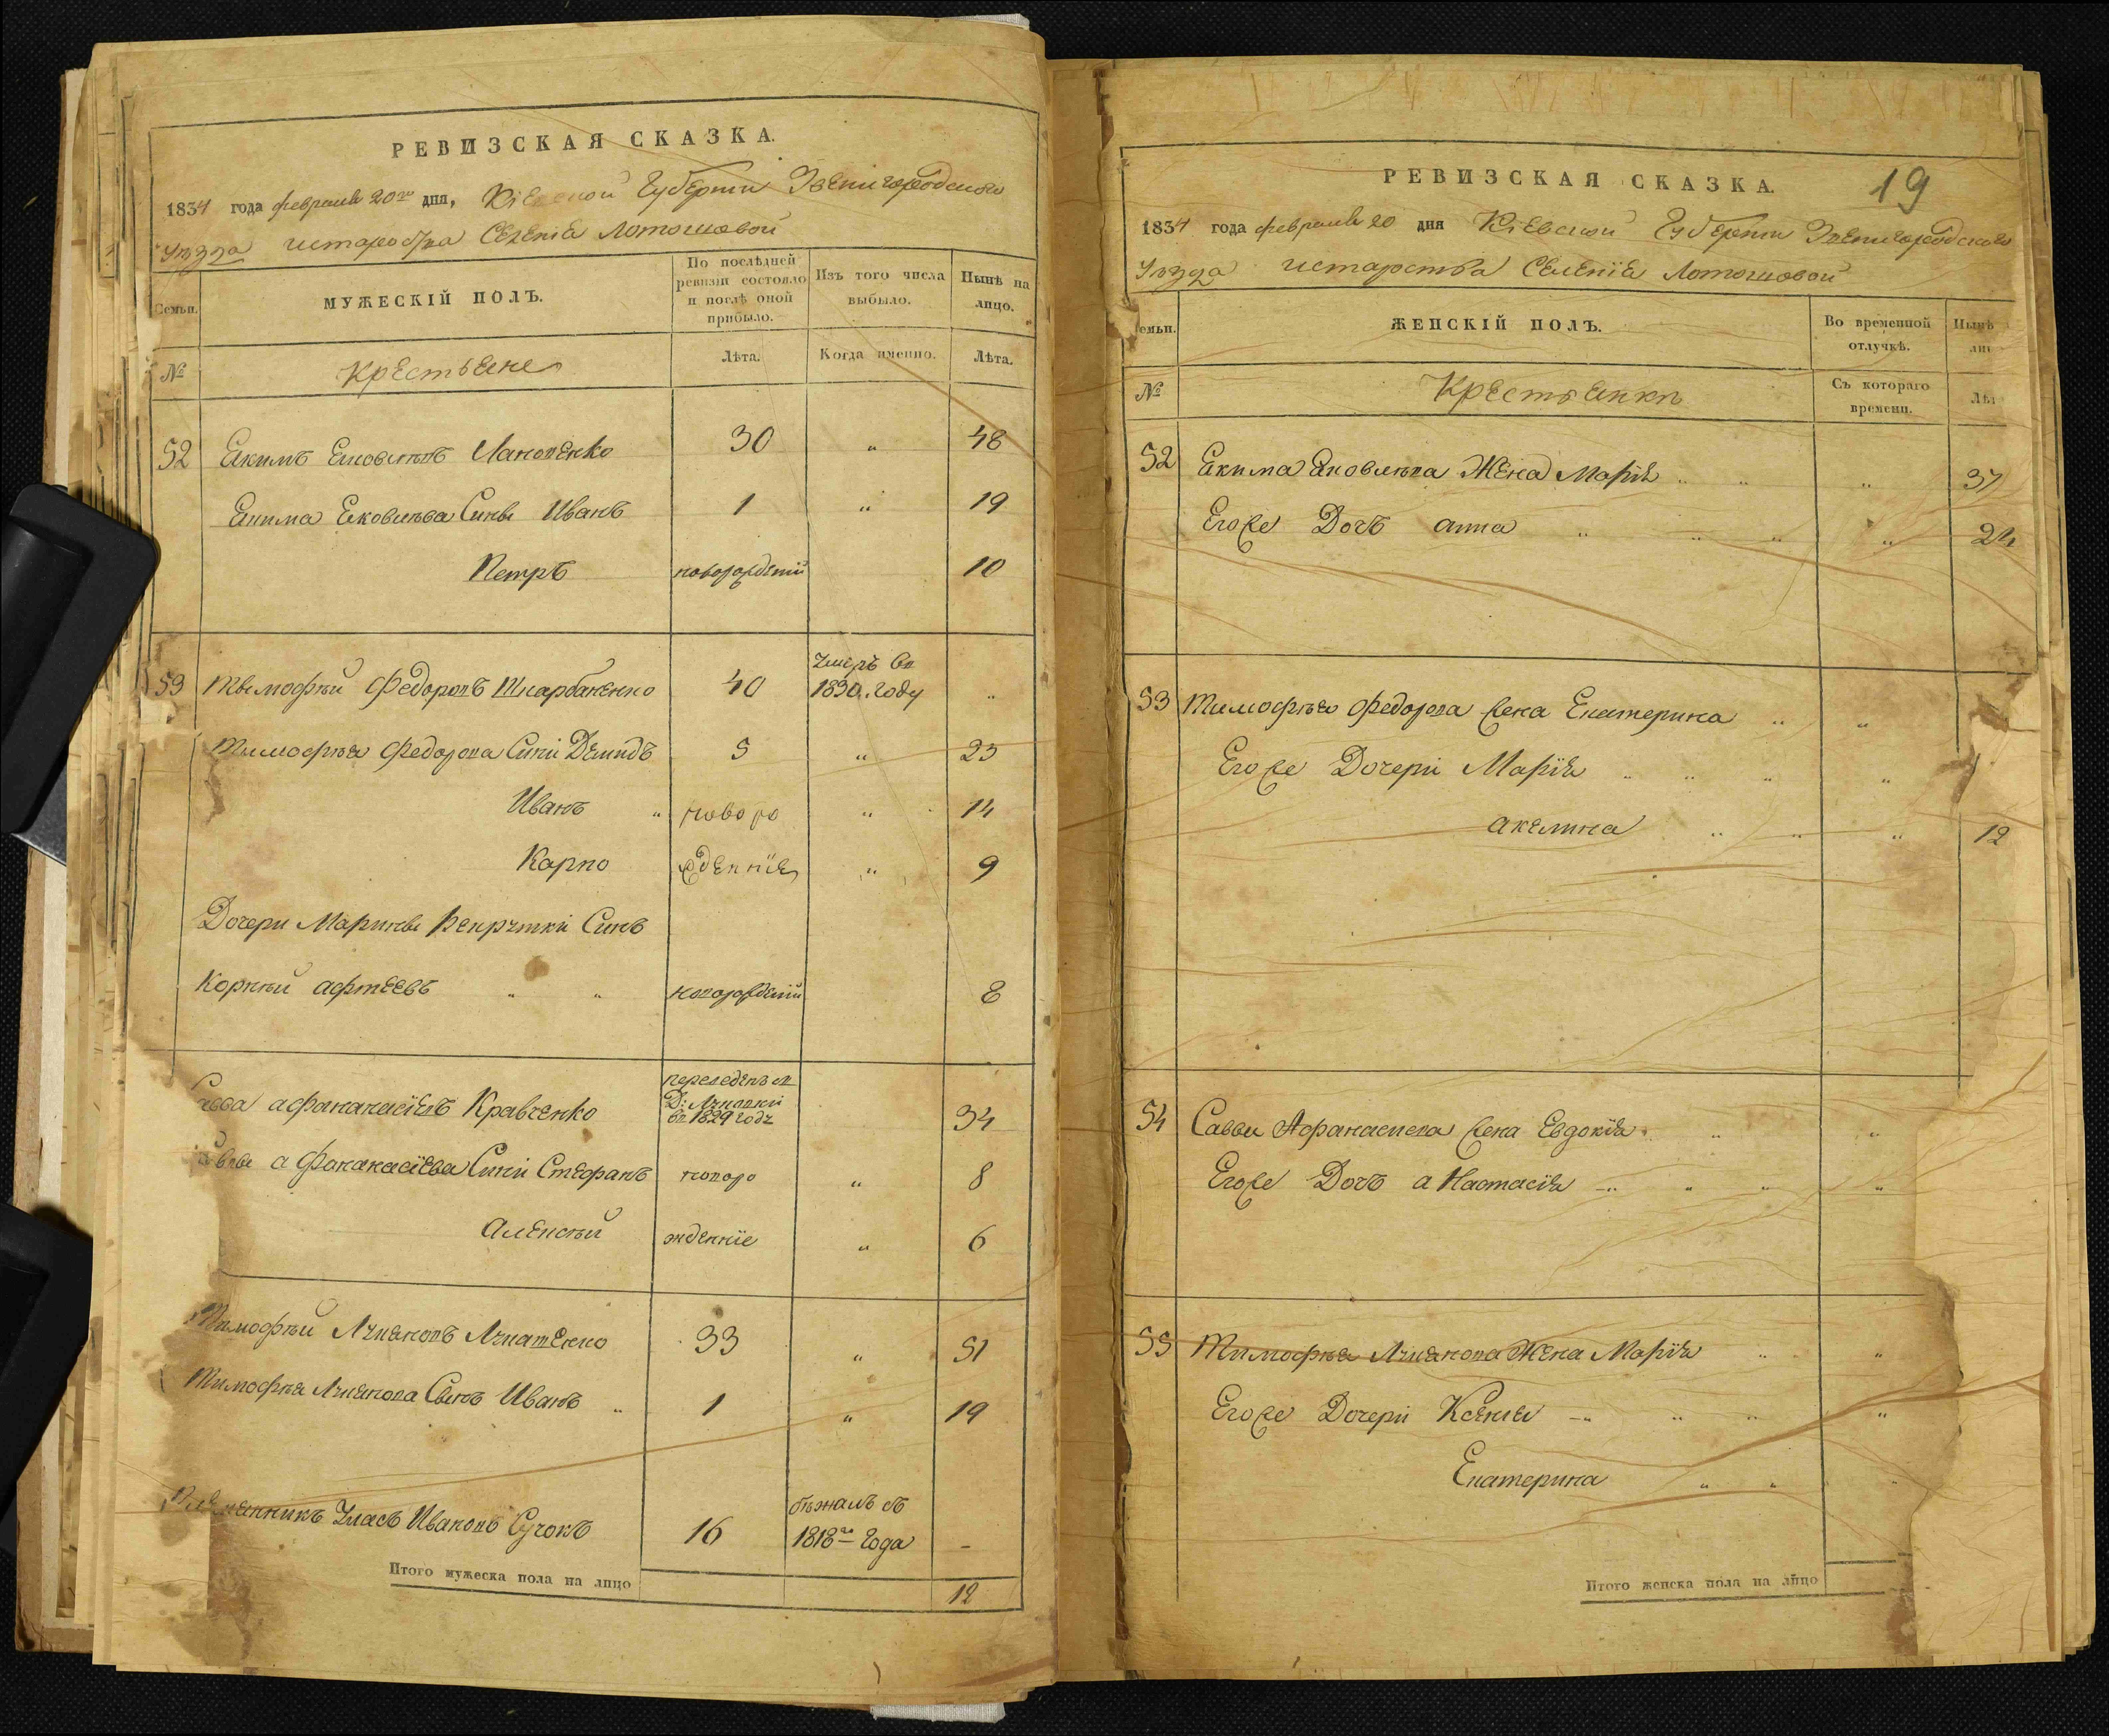 РЕВИЗСКАЯ СКАЗКА.
1834 года февраля 20го дня, Кіевской Губерніи Звенигородского
Уѣзда истароства Селенія Лотошовой
Семьи.
МУЖЕСКІЙ ПОЛЪ.
По послѣдней ревизіи состояло и послѣ оной прибыло.
Изъ того числа выбыло.
Нынѣ на лицо.
№
Крестьяне
Лѣта.
Когда именно.
Лѣта.
52 Екимъ Ековлевъ 30 „ 48
Екима Ековлева Сины Иванъ 1 „ 19
Петръ новорожденій 10
53 Тымофѣй Федоровъ Шкарбаненко 40 Умеръ въ 1830. году „
Тимофѣя Федорова Сини Демидъ 5 „ 23
Иванъ „ новоро „ 14
Карпо жденніе „ 9
Дочери Марины Синъ
Корнѣй афтеевъ „ „ новорожденій 8
авва афананасіевъ Кравченко переведенъ въ Д: въ 1829 году 34
аввы афананасіева Сини Стефанъ новоро „ 8
Алексѣй жденніе „ 6
Тимофѣй Лукяновъ 33 „ 51
Тимофѣя Лукянова Сынъ Иванъ „ 1 „ 19
Племянникъ Уласъ Ивановъ Сучокъ 16 бѣжалъ съ 1818го года –
Итого мужеска пола на лицо 12
19
РЕВИЗСКАЯ СКАЗКА.
1834 года февраля 20 дня Кіевской Губерніи Звенигородского
Уѣзда истароства Селеніе Лотошовой
семьи.
ЖЕНСКІЙ ПОЛЪ.
Во временной отлучкѣ.
Нынѣ
№
Крестьянки
Съ котораго времени.
52 Екима Ековлева Жена Марія „ „ „ 37
Егоже Дочъ анна „ „ „ „ 24
53 Тимофѣя Федорова жена Екатерина „ „
Егоже Дочери Марія „ „ „ „
акелина „ „ „ 12
54 Саввы Афанасиева жена Евдокія „ „ „
Егоже Дочъ аНастасія „ „ „ „
55 Тимофѣя Лукянова Жена Марія „ „
Егоже Дочери Ксенія „ „ „ „
Екатерина „ „ „
Итого женска пола на лицо